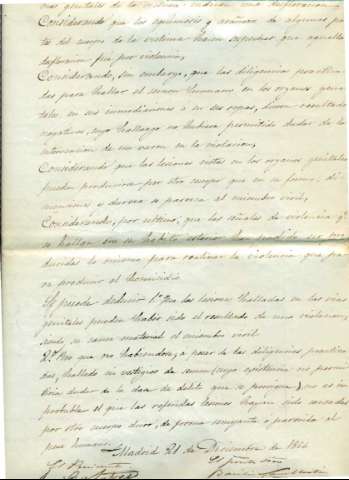 nas genitales de la misma indican una desfloracion
Considerando que los equimosis y arañazos de algunas par-
tes del cuerpo de la victima hacen sospechar que aquella
desfloracion fué por violencia,
Considerando, sin embargo, que las diligencias practica-
das para hallar el semen humano en los organos geni-
tales en sus inmediaciones ó en sus ropas, dieron resultado
negativo, cuyo hallazgo no hubiera permitido dudar de la
intervencion de un varon en la violacion,
Considerando que las lesiones vistas en los organos genitales
pueden producirse por otro cuerpo que en su forma, di-
mensiones y dureza se parezca al miembro viril,
Considerando, por ultimo, que las señales de violencia q.
se hallan en su habito exterior han podido ser pro-
ducidas lo mismo para realizar la violencia que pa-
ra producir el homicidio
Se puede deducir 1º Que las lesiones halladas en las vias
genitales pueden haber sido el resultado de una violacion,
siendo su causa material el miembro viril.
2º Pero que no habiendose, á pesar de las diligencias practica-
das, hallado en vestigios de semen (cuya existencia no permi-
tiria dudar de la clase de delito que se persigue) no es im-
probable el que las referidas lesiones hayan sido causadas
por otro cuerpo duro, de forma semejante ó parecida al
pene humano.
Madrid 21 de Diciembre de